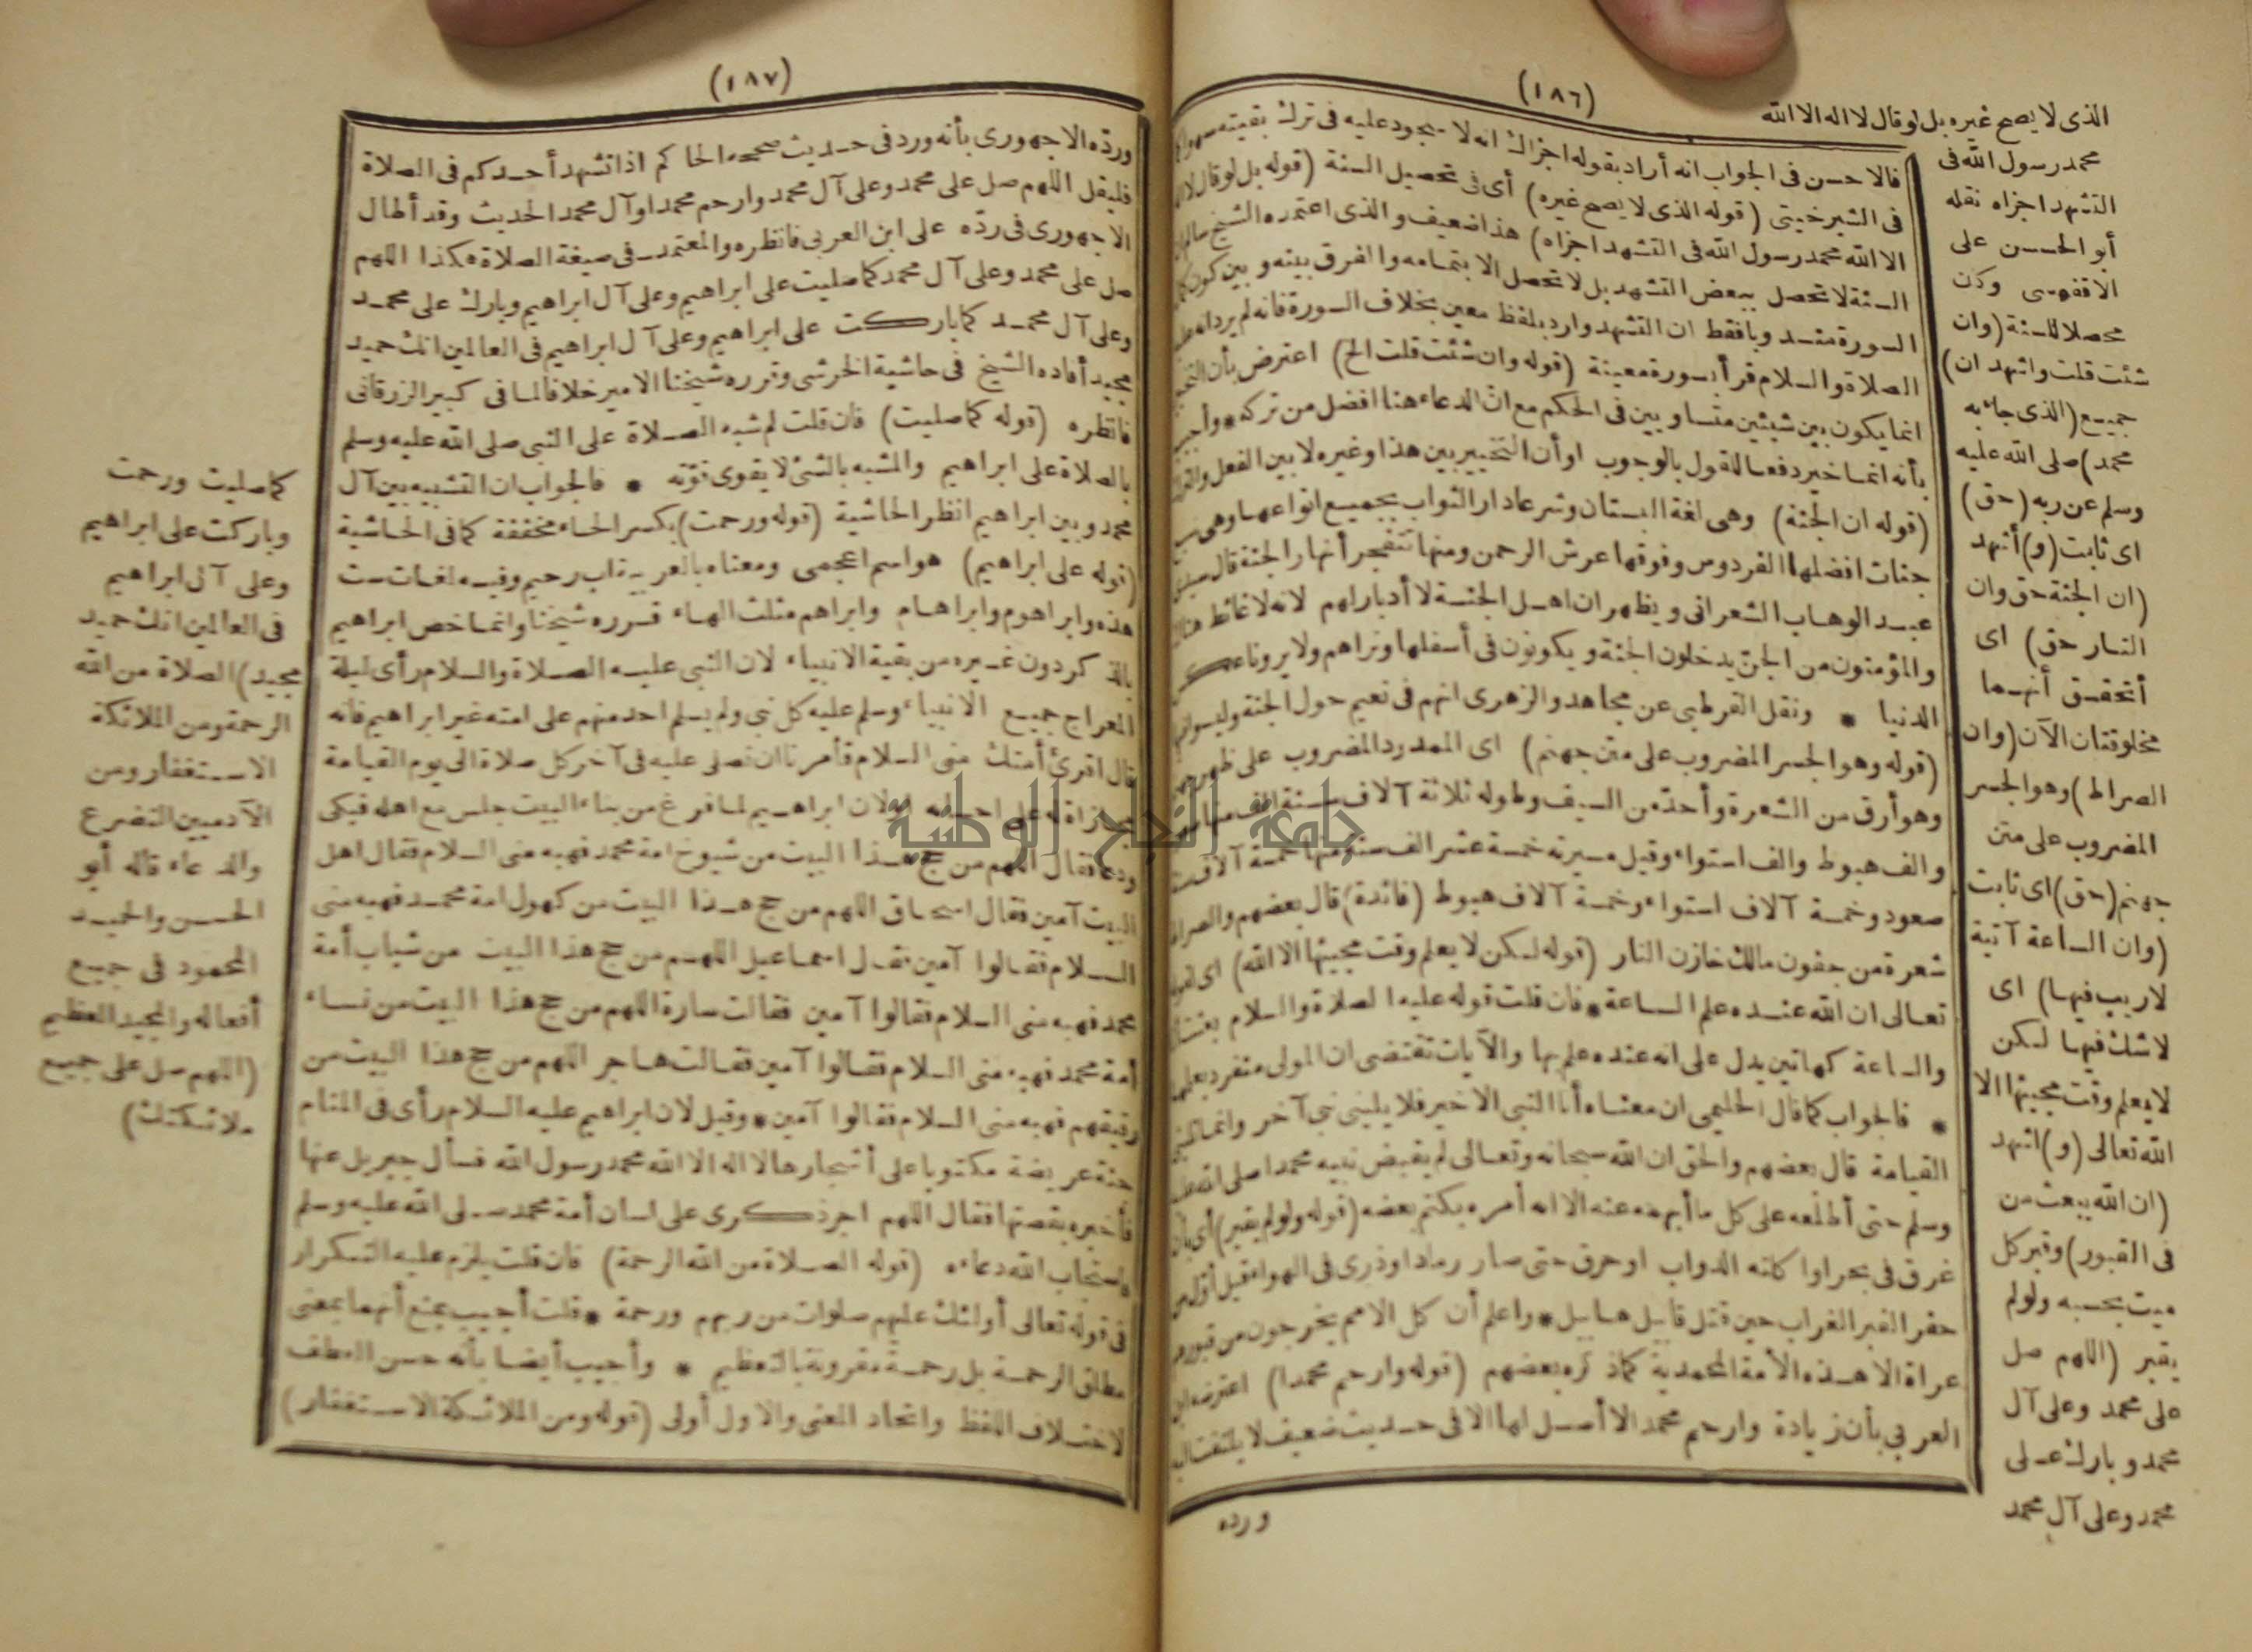 (١٨٦)
الذى لا يصح غيره بل لو قال لا اله الا الله
محمد رسول الله فى
التشهد اجزاه نقله
أبو الحسن على
الاقفهسى وكان
محصلا للسنة (وان
شئت قلت واشهد ان)
جميع (الذى جاء به
محمد) صلى الله عليه
وسلم عن ربه (حق)
اى ثابت (و) أشهد
(ان الجنة حق وان
النار حق) اى
أتحقق أنهما
مخلوقتان الآن (وان
الصراط) وهو الجسر
المضروب على متن
جهنم (حق) اى ثابت
(وان الساعة آتية
لا ريب فيها) اى
لا شك فيها لكن
لا يعلم وقت مجيئها الا
الله تعالى (و) اشهد
(ان الله يبعث من
فى القبور) وقبر كل
ميت بحسبه ولو لم
يقبر (اللهم صل
على محمد وعلى آل
محمد وبارك على
محمد وعلى آل محمد
فالاحسن فى الجواب انه أراد بقوله اجزاك انه لا سجود عليه فى ترك بقيته سهوا
فى الشبرخيتى (قوله الذى لا يصح غيره) أى فى تحصيل السنة (قوله بل لو قال لا اله
الا الله محمد رسول الله فى التشهد اجزاه) هذا ضعيف والذى اعتمده الشيخ سالم
السنة لا تحصل ببعض التشهد بل لا تحصل الا بتمامه والفرق بينه وبين كون
السورة مندوبا فقط ان التشهد وارد بلفظ معين بخلاف السورة فانه لم يرد انه عليه
الصلاة والسلام قرأ بسورة معينة (قوله وان شئت قلت الخ) اعترض بأن التخيير
انما يكون بين شيئين متساويين فى الحكم مع ان الدعاء هنا افضل من تركه * وأجيب
بأنه انما خير دفعا للقول بالوجوب او أن التخيير بين هذا وغيره لا بين الفعل والترك
(قوله ان الجنة) وهى لغة البستان وشرعا دار الثواب بجميع انواعها وهى سبع
جنات افضلها الفردوس وفوقها عرش الرحمن ومنها تتفجر أنهار الجنة قال سيدى
عبد الوهاب الشعرانى ويظهر ان اهل الجنة لا أدبار لهم لانه لا غائط هناك
والمؤمنون من الجن يدخلون الجنة ويكونون فى أسفلها ونراهم ولا يرونا عكس
الدنيا * ونقل القرطبى عن مجاهد والزهرى انهم فى نعيم حول الجنة وليسوا فيها
(قوله وهو الجسر المضروب على متن جهنم) اى الممدود المضروب على ظهر جهنم
وهو أرق من الشعرة وأحد من السيف وطوله ثلاثة آلاف سنة الف منها
والف هبوط والف استواء وقيل مسيرته خمسة عشر الف سنة منها خمسة آلاف
صعود وخمسة آلاف استواء وخمسة آلاف هبوط (فائدة) قال بعضهم والصراط
شعرة من جفون مالك خازن النار (قوله لكن لا يعلم وقت مجيئها الا الله) اى لقوله
تعالى ان الله عنده علم الساعة * فان قلت قوله عليه الصلاة والسلام بعثت أنا
والساعة كهاتين يدل على انه عنده علم بها والآيات تقتضى ان المولى منفرد بعلمها
* فالجواب كما قال الحليمى ان معناه أنا النبى الاخير فلا يلينى نبى آخر وانما
القيامة قال بعضهم والحق ان الله سبحانه وتعالى لم يقبض نبيه محمدا صلى الله عليه
وسلم حتى أطلعه على كل ما أبهمه عنه الا انه أمره بكتم بعضه (قوله ولو لم يقبر) أى بأن
غرق فى بحر او اكلته الدواب او حرق حتى صار رمادا وذرى فى الهواء قيل أول من
حفر القبر الغراب حين قتل قابيل هابيل * واعلم أن كل الامم يخرجون من قبورهم
عراة الا هذه الأمة المحمدية كما ذكره بعضهم (قوله وارحم محمدا) اعترضه ابن
العربى بأن زيادة وارحم محمدا لا أصل لها الا فى حديث ضعيف لا يلتفت اليه
ورده
(١٨٧)
ورده الاجهورى بأنه ورد فى حديث صححه الحاكم اذا تشهد أحدكم فى الصلاة
فليقل اللهم صل على محمد وعلى آل محمد وارحم محمدا وآل محمد الحديث وقد أطال
الاجهورى فى رده على ابن العربى فانظره والمعتمد فى صيغة الصلاة هكذا اللهم
صل على محمد وعلى آل محمد كما صليت على ابراهيم وعلى آل ابراهيم وبارك على محمد
وعلى آل محمد كما باركت على ابراهيم وعلى آل ابراهيم فى العالمين انك حميد
مجيد أفاده الشيخ فى حاشية الخرشى وقرره شيخنا الامير خلافا لما فى كبير الزرقانى
فانظره (قوله كما صليت) فان قلت لم شبه الصلاة على النبى صلى الله عليه وسلم
بالصلاة على ابراهيم والمشبه بالشئ لا يقوى قوته * فالجواب ان التشبيه بين آل
محمد وبين ابراهيم انظر الحاشية (قوله ورحمت) بكسر الحاء مخففة كما فى الحاشية
(قوله على ابراهيم) هو اسم اعجمى ومعناه بالعربية اب رحيم وفيه لغات ست
هذه وابراهوم وابراهام وابراهم مثلث الهاء قرره شيخنا وانما خص ابراهيم
بالذكر دون غيره من بقية الانبياء لان النبى عليه الصلاة والسلام رأى ليلة
المعراج جميع الانبياء وسلم عليه كل نبى ولم يسلم احد منهم على امته غير ابراهيم فانه
قال اقرئ أمتك منى السلام فأمرنا ان نصلى عليه فى آخر كل صلاة الى يوم القيامة
مجازاة له على احسانه او لان ابراهيم لما فرغ من بناء البيت جلس مع اهله فبكى
ودعا فقال اللهم من حج هذا البيت من شيوخ امة محمد فهبه منى السلام فقال اهل
البيت آمين فقال اسحاق اللهم من حج هذا البيت من كهول امة محمد فهبه منى
السلام فقالوا آمين فقال اسماعيل اللهم من حج هذا البيت من شباب أمة
محمد فهبه منى السلام فقالوا آمين فقالت سارة اللهم من حج هذا البيت من نساء
أمة محمد فهبه منى السلام فقالوا آمين فقالت هاجر اللهم من حج هذا البيت من
رقيقهم فهبه منى السلام فقالوا آمين * وقيل لان ابراهيم عليه السلام رأى فى المنام
جنة عريضة مكتوبا على أشجارها لا اله الا الله محمد رسول الله فسأل جبريل عنها
فأخبره بقصتها فقال اللهم اجر ذكرى على لسان أمة محمد صلى الله عليه وسلم
فاستجاب الله دعاءه (قوله الصلاة من الله الرحمة) فان قلت يلزم عليه التكرار
فى قوله تعالى أولئك عليهم صلوات من ربهم ورحمة * قلت أجيب بمنع أنهما بمعنى
مطلق الرحمة بل رحمة مقرونة بالتعظيم * وأجيب أيضا بأنه حسن العطف
لاختلاف اللفظ واتحاد المعنى والاول أولى (قوله ومن الملائكة الاستغفار)
كما صليت ورحمت
وباركت على ابراهيم
وعلى آل ابراهيم
فى العالمين انك حميد
مجيد) الصلاة من الله
الرحمة ومن الملائكة
الاستغفار ومن
الآدميين التضرع
والدعاء قاله أبو
الحسن والحميد
المحمود فى جميع
أفعاله والمجيد العظيم
(اللهم صل على جميع
ملائكتك)
جامعة النجاح الوطنية